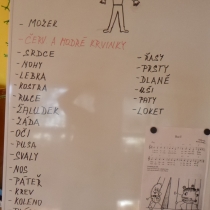 - MOZEK
- ČERV A MODRÉ KRVINKY
- SRDCE
- NOHY
- LEBKA
- KOSTRA
- RUCE
- ŽALUDEK
- ZÁDA
- OČI
- PUSA
- SVALY
- NOS
- PÁTEŘ
- KREV
- KOLENO
- ŘASY
- PRSTY
- DLANĚ
- UŠI
- PATY
- LOKET